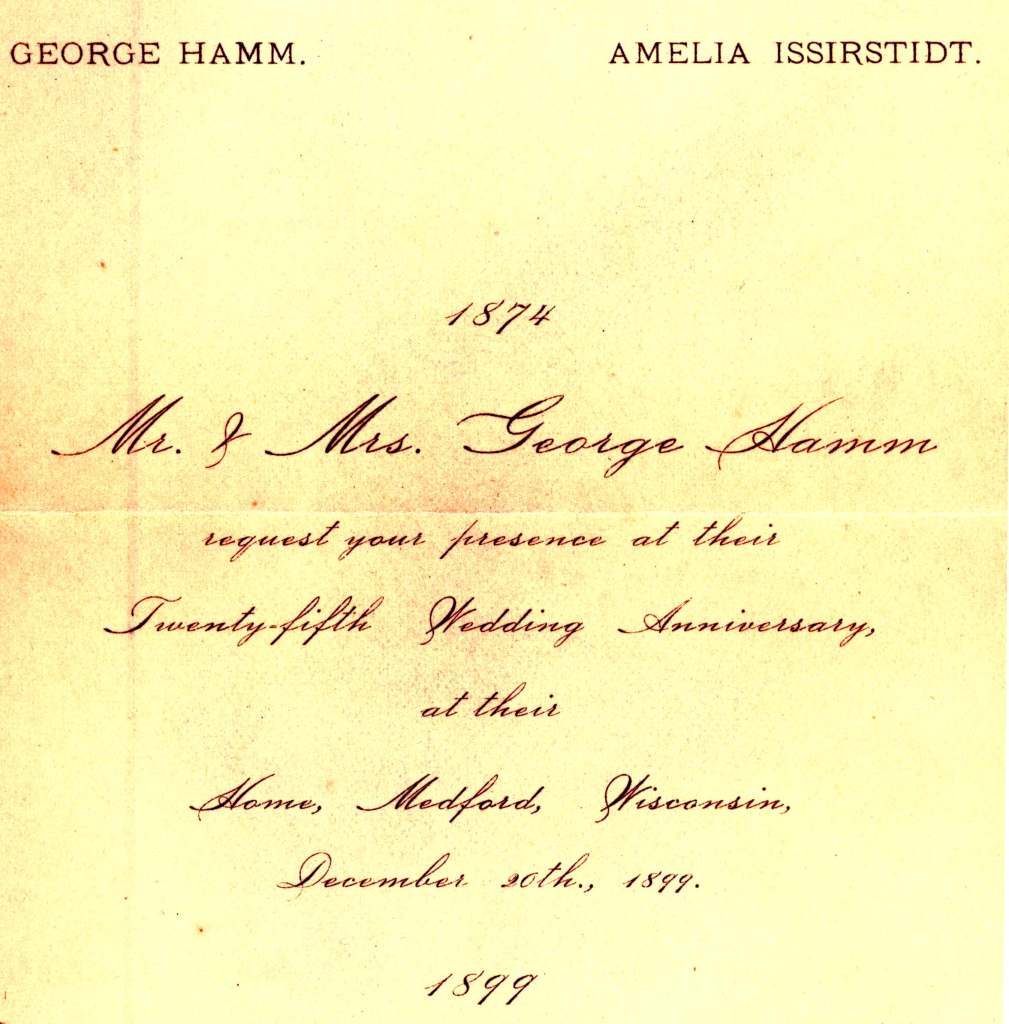 GEORGE HAMM. AMELIA ISSIRSTIDT.
1874
Mr. & Mrs. George Hamm
request your presence at their
Twenty-fifth Wedding Anniversary,
at their
Home, Medford, Wisconsin,
December 20th., 1899.
1899